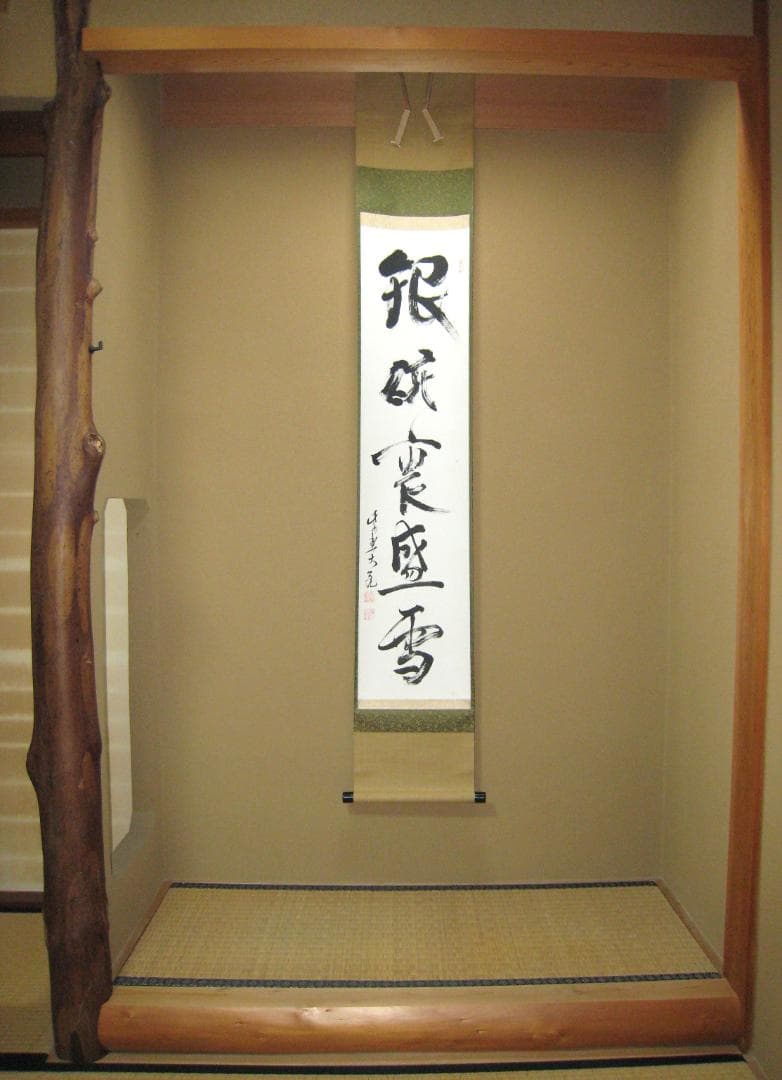 銀碗裏盛雪